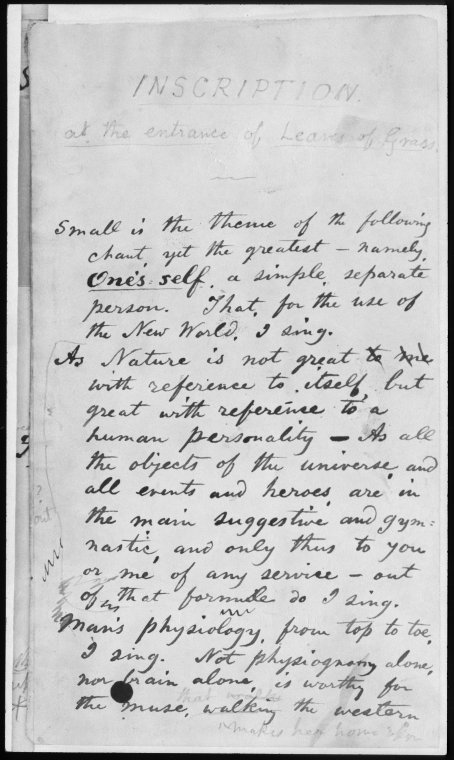 INSCRIPTION.
at the entrance of Leaves of Grass.
Small is the theme of the following
chant, yet the greatest – namely,
One's-self, a simple, separate
person. That, for the use of
the New World, I sing.
As Nature is not great to me
with reference to itself, but
great with reference to a
human personality – As all
the objects of the universe, and
all events and heroes, are in
the main suggestive and gym-
nastic, and only thus to you
or me of any service – out
of that formule do I sing.
Man's physiology, from top to toe,
I sing. Not physiognomy alone,
nor brain alone, is worthy for
the muse, walking the western
makes her home
? out